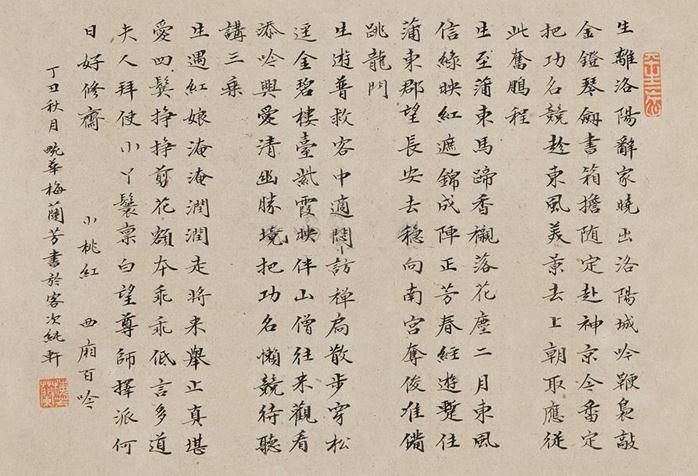 生離洛陽辭家曉出洛陽城吟鞭裊敲
金鐙琴劍書箱擔随定赴神京今番定
把功名競趁東風美景去上朝取應從
此奮鵬程
生至蒲東馬蹄香襯落花塵二月東風
信綠映紅遮錦成陣正芳春經遊蹔住
蒲東郡望長安去穩向南宮奪俊准備
跳龍門
生遊普救客中適悶訪禅扃散步穿松
逕金碧樓臺紫霞映伴山僧往來觀看
添吟興愛清幽勝境把功名懶競待聽
講三乘
生遇紅娘淹淹潤潤走將来舉止真堪
愛四鬢掙掙剪花額本乖乖低言多道
夫人拜使小丫鬟稟白望尊師擇派何
日好修齋 小桃紅 西廂百吟
丁丑秋月 畹華梅蘭芳書於客次純軒